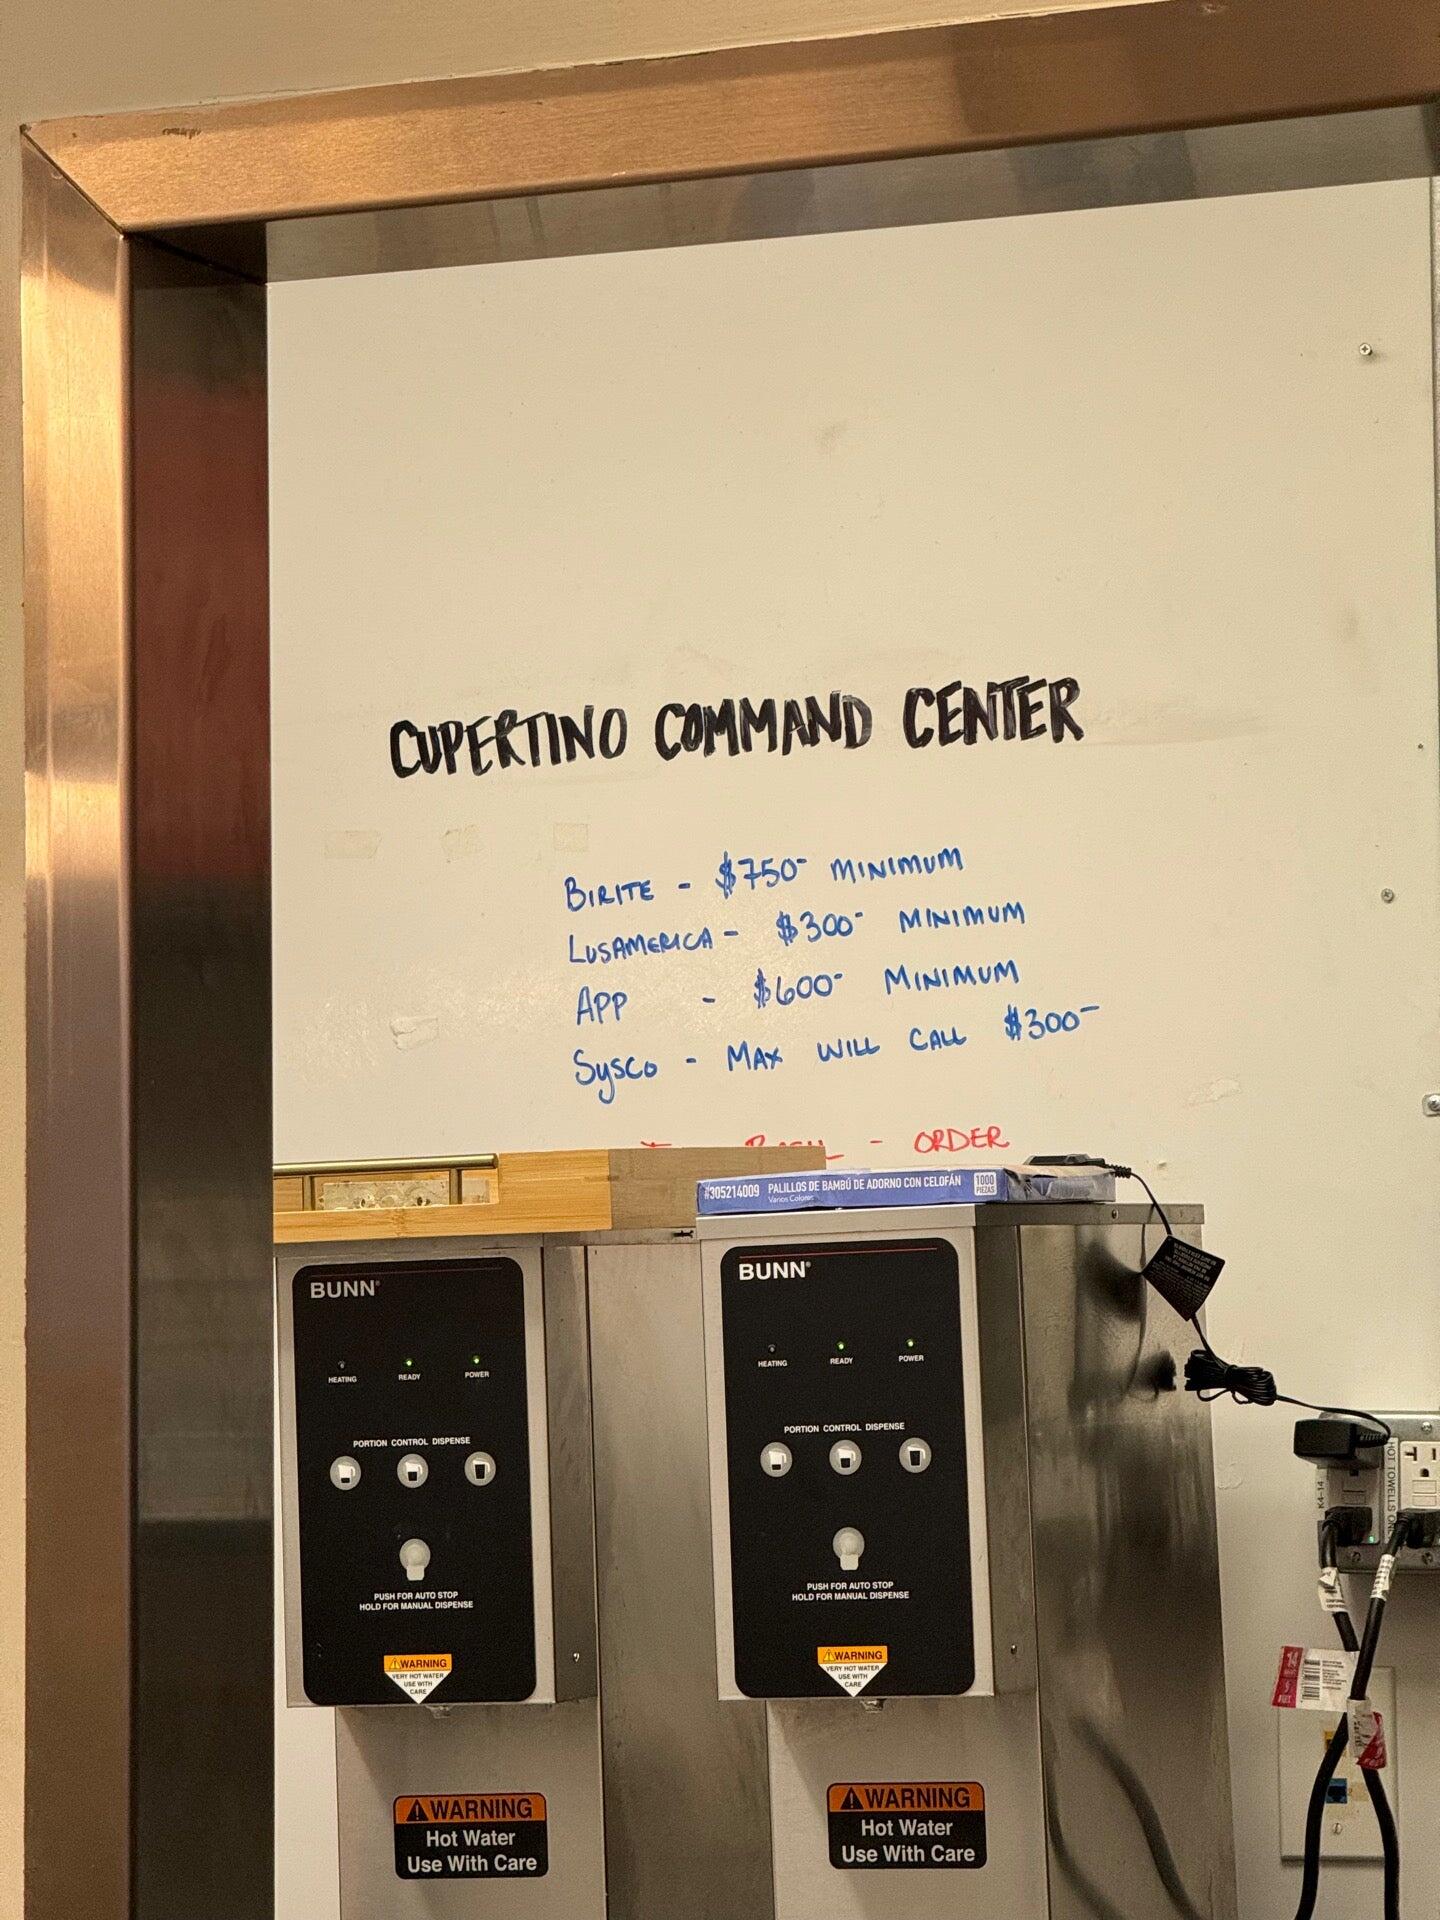 CUPERTINO COMMAND CENTER
BIRITE - $750- MINIMUM
LUSAMERICA - $300- MINIMUM
APP - $600- MINIMUM
SYSCO - MAX WILL CALL $300-
- ORDER
#305214009 PALILLOS DE BAMBÚ DE ADORNO CON CELOFÁN 1000 PIEZAS
Varios Colores
BUNN®
HEATING READY POWER
PORTION CONTROL DISPENSE
PUSH FOR AUTO STOP
HOLD FOR MANUAL DISPENSE
WARNING
VERY HOT WATER
USE WITH
CARE
WARNING
Hot Water
Use With Care
BUNN®
HEATING READY POWER
PORTION CONTROL DISPENSE
PUSH FOR AUTO STOP
HOLD FOR MANUAL DISPENSE
WARNING
VERY HOT WATER
USE WITH
CARE
WARNING
Hot Water
Use With Care
K4-14
HOT TOWELLS